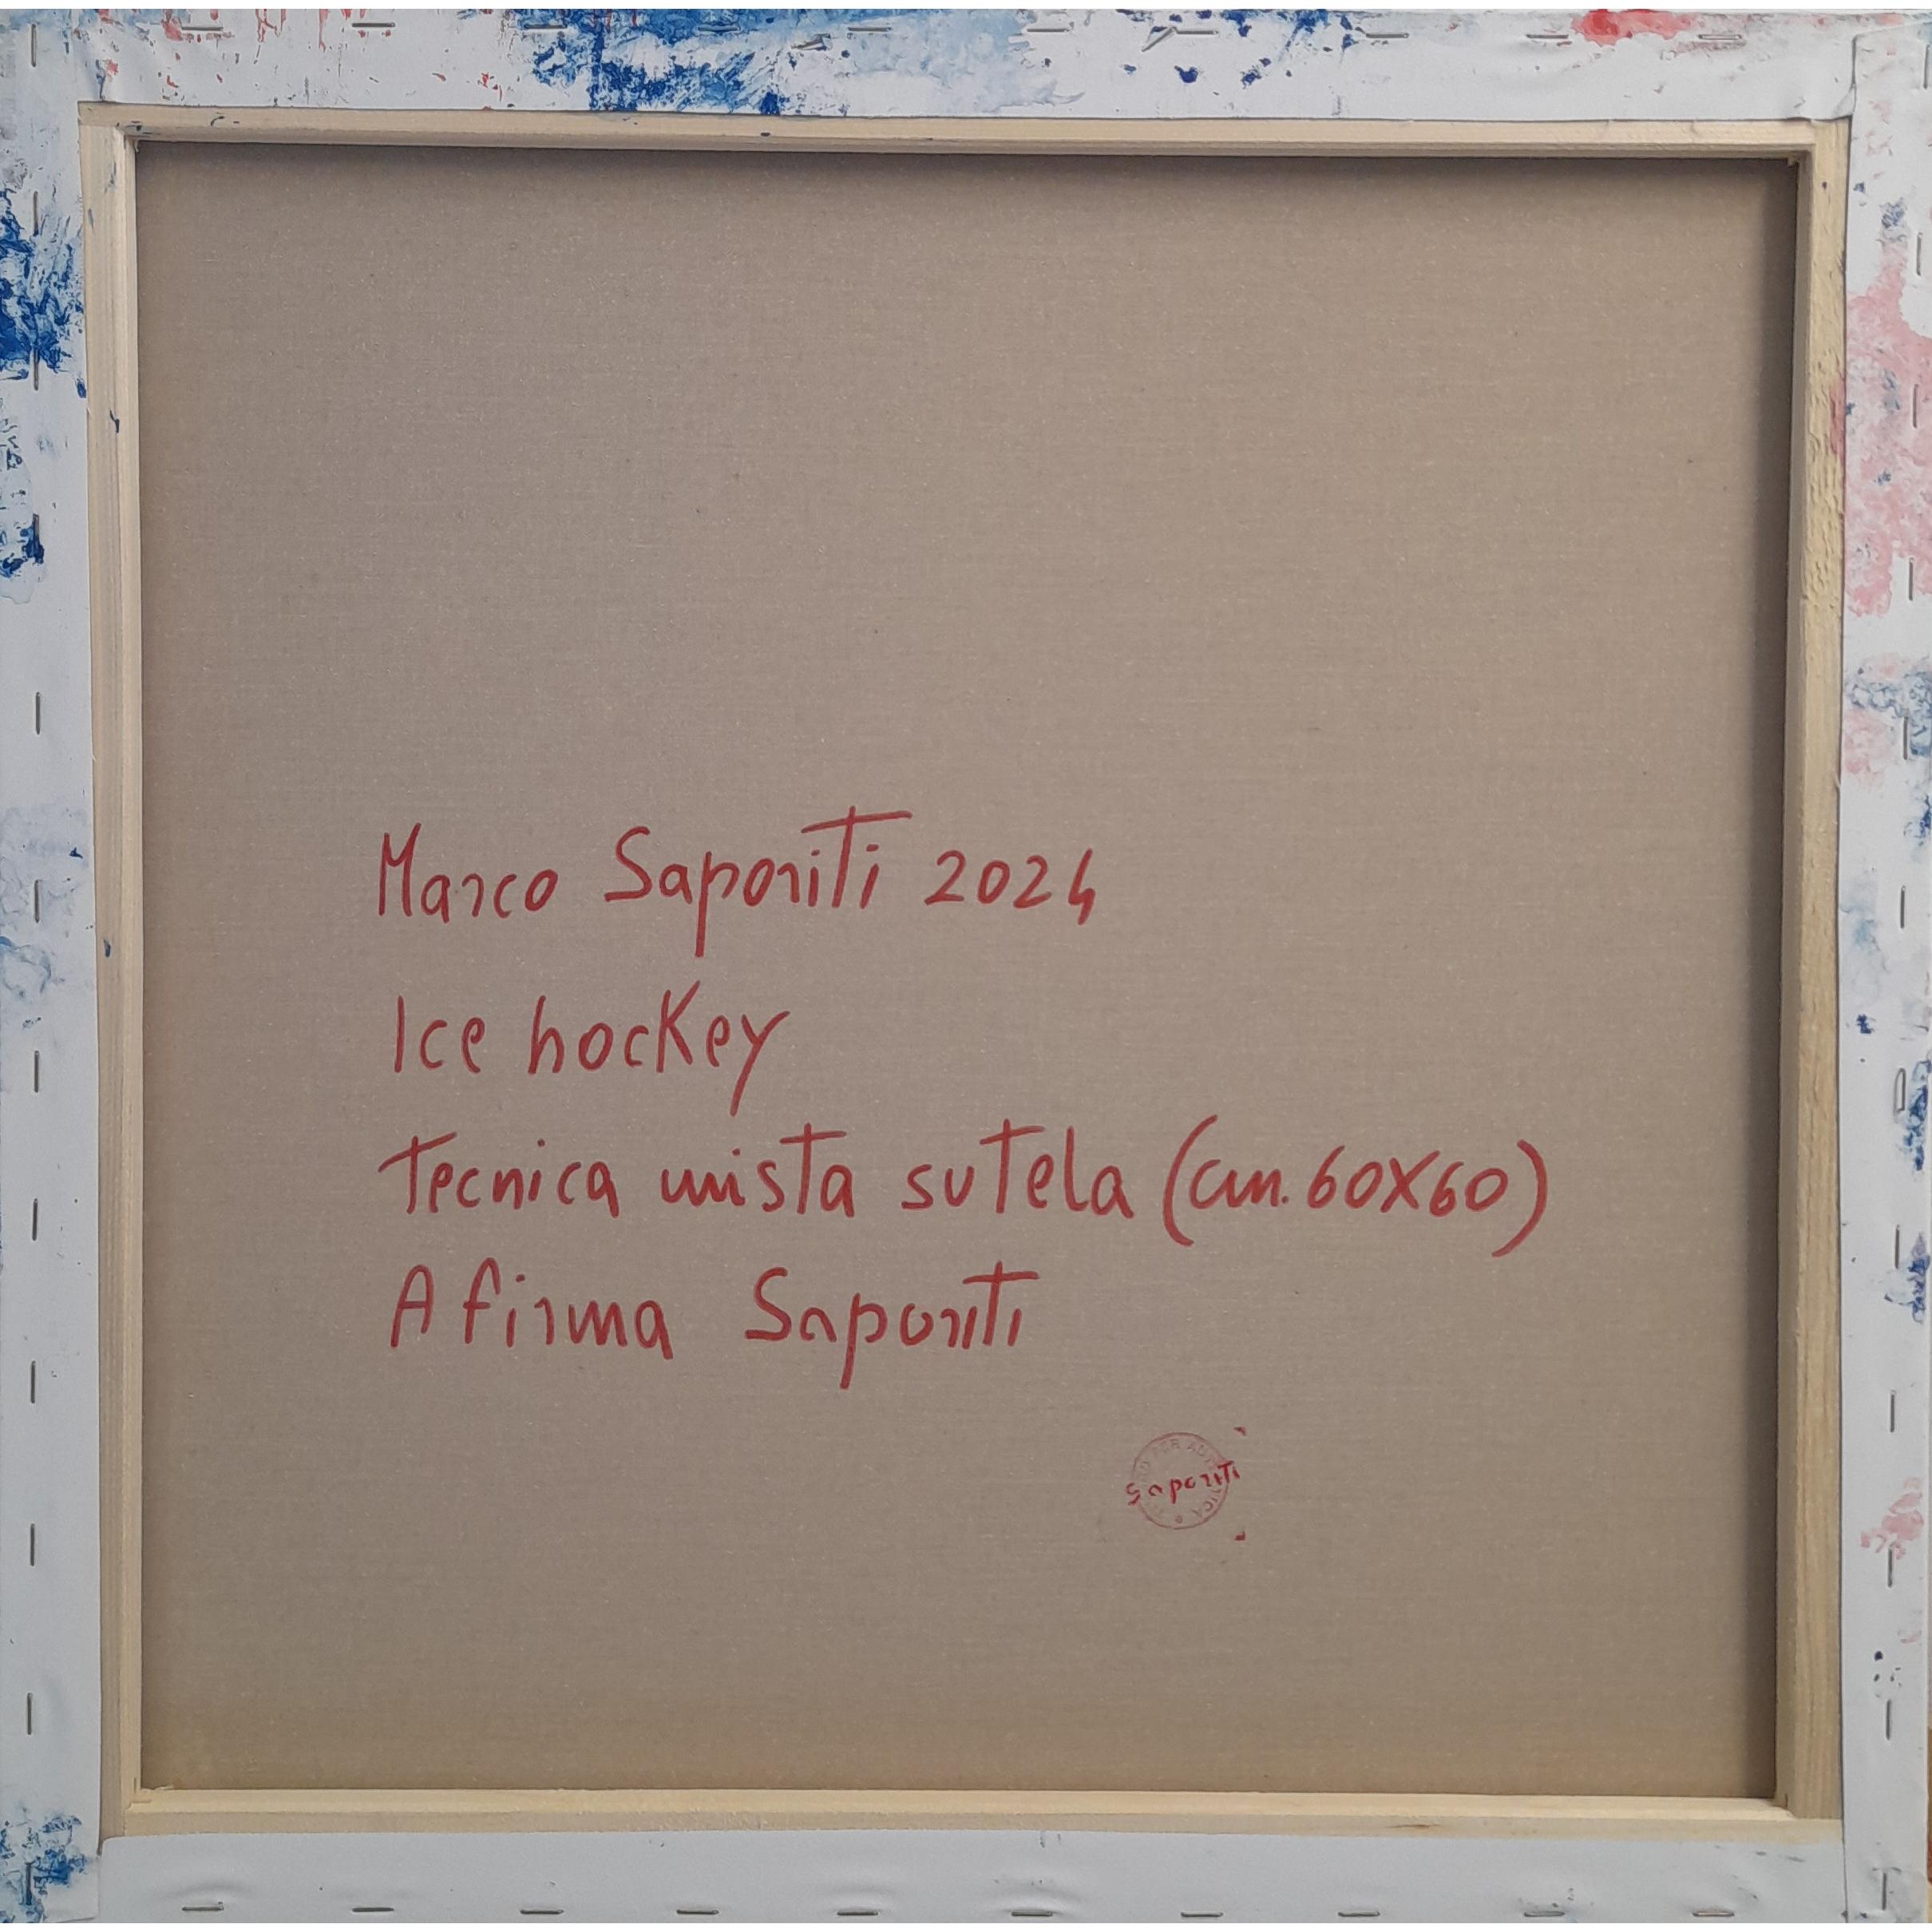 Marco Saporiti 2024
Ice hockey
Tecnica mista su tela (cm. 60x60)
A firma Saporiti
Saporiti